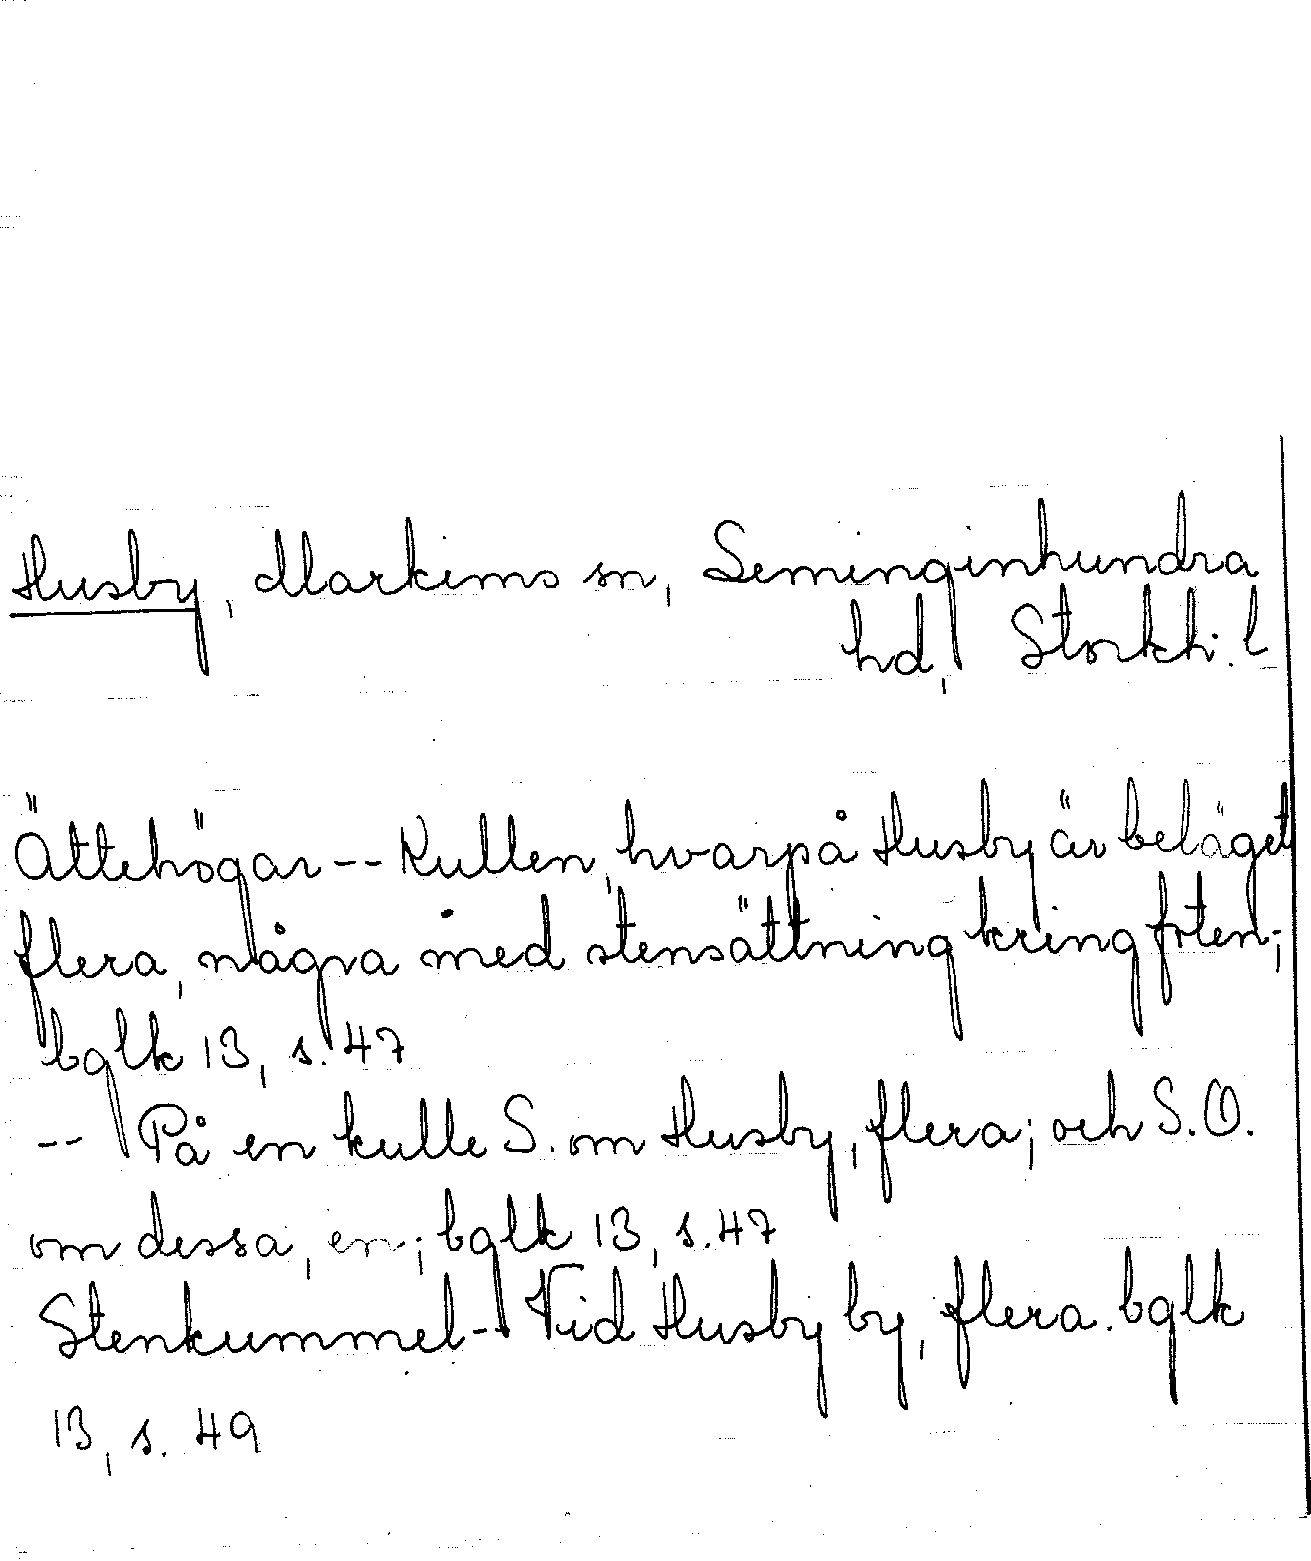 Husby, Markims sn, Seminginhundra
hd, Storkh. l
Ättehögar -- Kullen, hvarpå Husby är beläget
flera, några med stensättning kring foten;
bglk 13, s. 47
-- På en kulle S. om Husby, flera; och S.O.
om dessa, en; bglk 13, s. 47
Stenkummel -- Vid Husby by, flera. bglk
13, s. 49